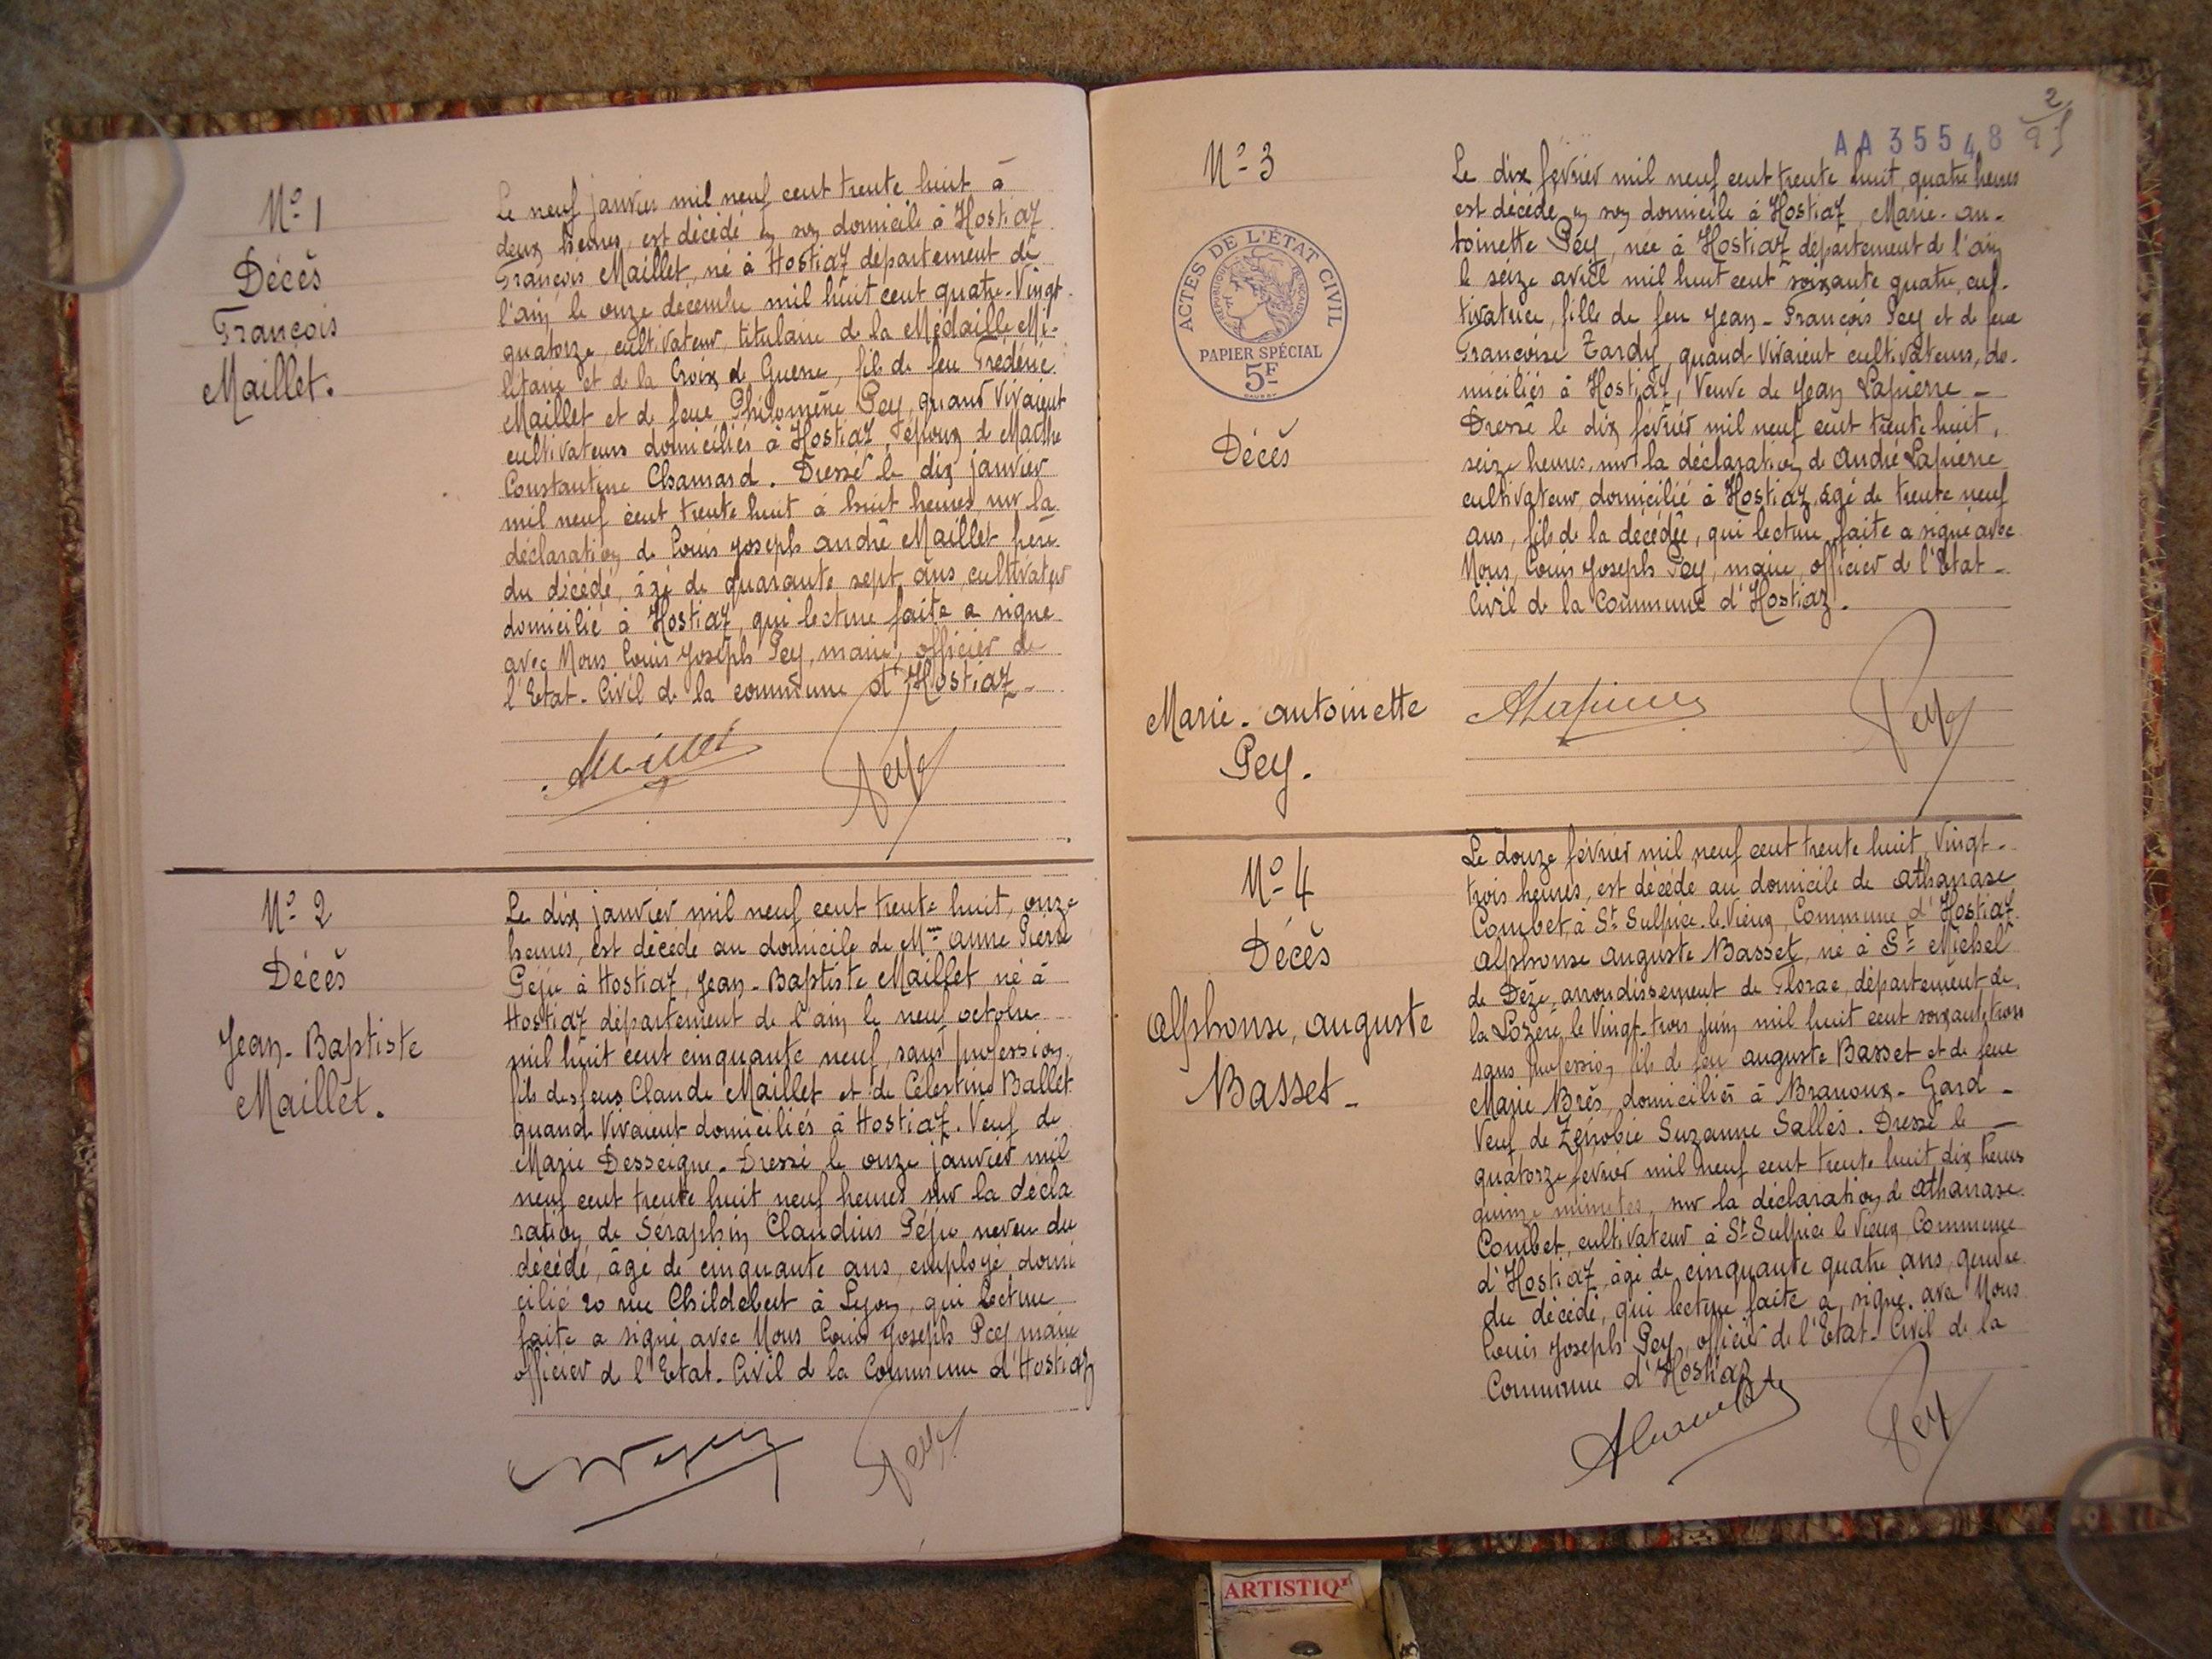 N° 1
Décès
François
Maillet.
Le neuf janvier mil neuf cent trente huit à
deux heures, est décédé en son domicile à Hostiaz
François Maillet, né à Hostiaz département de
l'ain le onze décembre mil huit cent quatre-Vingt
quatorze, cultivateur, titulaire de la Médaille Mi-
litaire et de la Croix de Guerre, fils de feu Frédéric
Maillet et de feue Philomène Pey, quand Vivaient
cultivateurs domiciliés à Hostiaz, époux de Marthe
Constantine Chamard. Dressé le dix janvier
mil neuf cent trente huit à huit heures, sur la
déclaration de Louis Joseph André Maillet frère
du décédé, âgé de quarante sept ans, cultivateur
domicilié à Hostiaz, qui lecture faite a signé
avec Nous Louis Joseph Pey, maire, officier de
l'Etat-Civil de la commune d'Hostiaz-
Maillet Pey
N° 2
Décès
Jean-Baptiste
Maillet.
Le dix janvier mil neuf cent trente huit, onze
heures, est décédé au domicile de Mme Anne Pierre
Péju à Hostiaz, Jean-Baptiste Maillet né à
Hostiaz département de l'ain le neuf octobre
mil huit cent cinquante neuf, sans profession,
fils des feus Claude Maillet et de Célestine Ballet
quand Vivaient domiciliés à Hostiaz. Veuf de
Marie Desseigne. Dressé le onze janvier mil
neuf cent trente huit, neuf heures sur la décla
ration de Séraphin Claudius Péju neveu du
décédé, âgé de cinquante ans, employé, domi
cilié 20 rue Childebert à Lyon, qui lecture
faite a signé avec Nous Louis Joseph Pey maire
officier de l'Etat-Civil de la Commune d'Hostiaz
Pey
2
AA 35548
N° 3
ACTES DE L'ÉTAT CIVIL
RÉPUBLIQUE FRANÇAISE
PAPIER SPÉCIAL
5F
Décès
Marie-antoinette
Pey.
Le dix février mil neuf cent trente huit, quatre heures
est décédée en son domicile à Hostiaz, Marie-an-
toinette Pey, née à Hostiaz département de l'ain
le seize avril mil huit cent soixante quatre, cul-
tivatrice, fille de feu Jean-François Pey et de feue
Françoise Tardy, quand Vivaient cultivateurs, do-
miciliés à Hostiaz, Veuve de Jean Lapierre -
Dressé le dix février mil neuf cent trente huit,
seize heures, sur la déclaration de André Lapierre
cultivateur, domicilié à Hostiaz, âgé de trente neuf
ans, fils de la décédée, qui lecture faite a signé avec
Nous, Louis Joseph Pey, maire, officier de l'Etat-
Civil de la Commune d'Hostiaz.
ALapierre Pey
N° 4
Décès
Alphonse, auguste
Basset-
Le douze février mil neuf cent trente huit, Vingt-
trois heures, est décédé au domicile de Athanase
Combet, à St Sulpice-le-Vieux, Commune d'Hostiaz
Alphonse Auguste Basset, né à St Michel
de Dèze, arrondissement de Florac, département de
la Lozère le Vingt-trois Juin mil huit cent soixante trois
sans profession, fils de feu Auguste Basset et de feue
Marie Brès, domiciliés à Branoux-Gard-
Veuf de Zénobie Suzanne Salles. Dressé le -
quatorze février mil neuf cent trente huit dix heures
quinze minutes, sur la déclaration de Athanase
Combet, cultivateur à St Sulpice le Vieux, Commune
d'Hostiaz, âgé de cinquante quatre ans, gendre
du décédé, qui lecture faite a signé avec Nous
Louis Joseph Pey, officier de l'Etat-Civil de la
Commune d'Hostiaz
Pey
ARTISTIQ